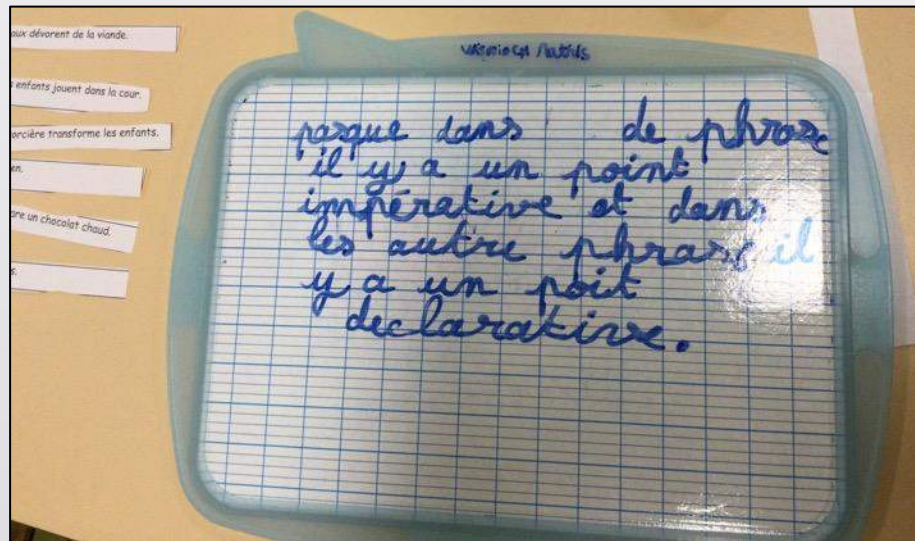 aux dévorent de la viande.
enfants jouent dans la cour.
orcière transforme les enfants.
en.
are un chocolat chaud.
s.
pasque dans de phrase
il y a un point
impérative et dans
les autre phrase il
y a un poit
declarative.